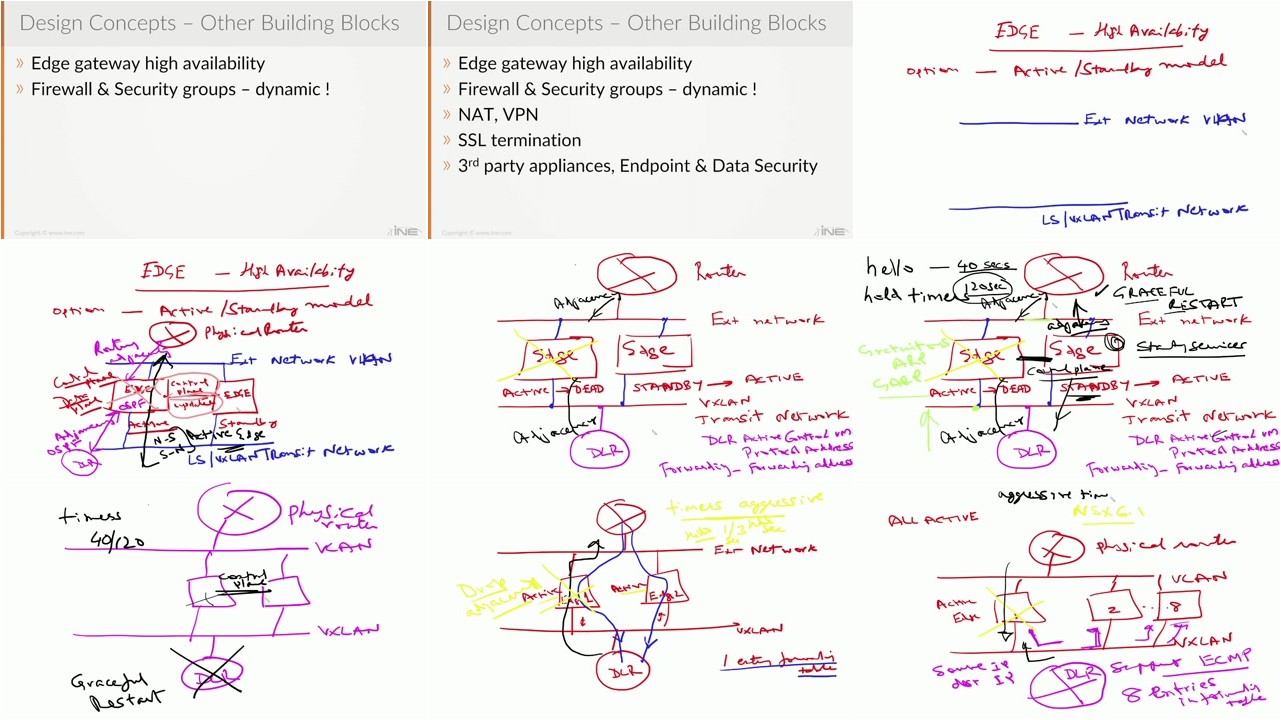 Design Concepts – Other Building Blocks
» Edge gateway high availability
» Firewall & Security groups – dynamic !
Copyright © www.ine.com
INE
Design Concepts – Other Building Blocks
» Edge gateway high availability
» Firewall & Security groups – dynamic !
» NAT, VPN
» SSL termination
» 3rd party appliances, Endpoint & Data Security
Copyright © www.ine.com
INE
EDGE — High Availability
option — Active/Standby model
Ext Network
LS/VXLAN Transit Network
EDGE — High Availability
option — Active/Standby model
Physical Router
Routing
Ext Network
EDGE
Control plane
EDGE
OSPF
Active
Standby
N-S
Active Edge
S-N
OSPF
DLR
LS/VXLAN Transit Network
Router
Adjacency
Ext network
Edge
Edge
Active → DEAD
STANDBY → ACTIVE
VXLAN
Transit Network
Adjacency
DLR Active Control VM
Protocol Address
DLR
Forwarding – Forwarding address
hello — 40 secs
hold timers 120sec
Router
Adjacency
GRACEFUL
RESTART
Ext network
Gratuitous
ARP
GARP
Edge
Edge
Control plane
Active → DEAD
STANDBY → ACTIVE
VXLAN
Transit Network
Adjacency
DLR Active Control VM
Protocol Address
DLR
Forwarding – Forwarding address
timers
40/120
physical
router
VLAN
Control
plane
VXLAN
DLR
Graceful
Restart
timers aggressive
hello 1/3 hold
sec sec
Ext Network
Drop
adjacency
Active
Edge1
Active
Edge2
VXLAN
DLR
1 entry forwarding
table
aggressive
NSX 6.1
ALL ACTIVE
physical router
VLAN
Active
2 .... 8
VXLAN
Source IP
dest IP
DLR
Support ECMP
8 Entries
in forwarding
table